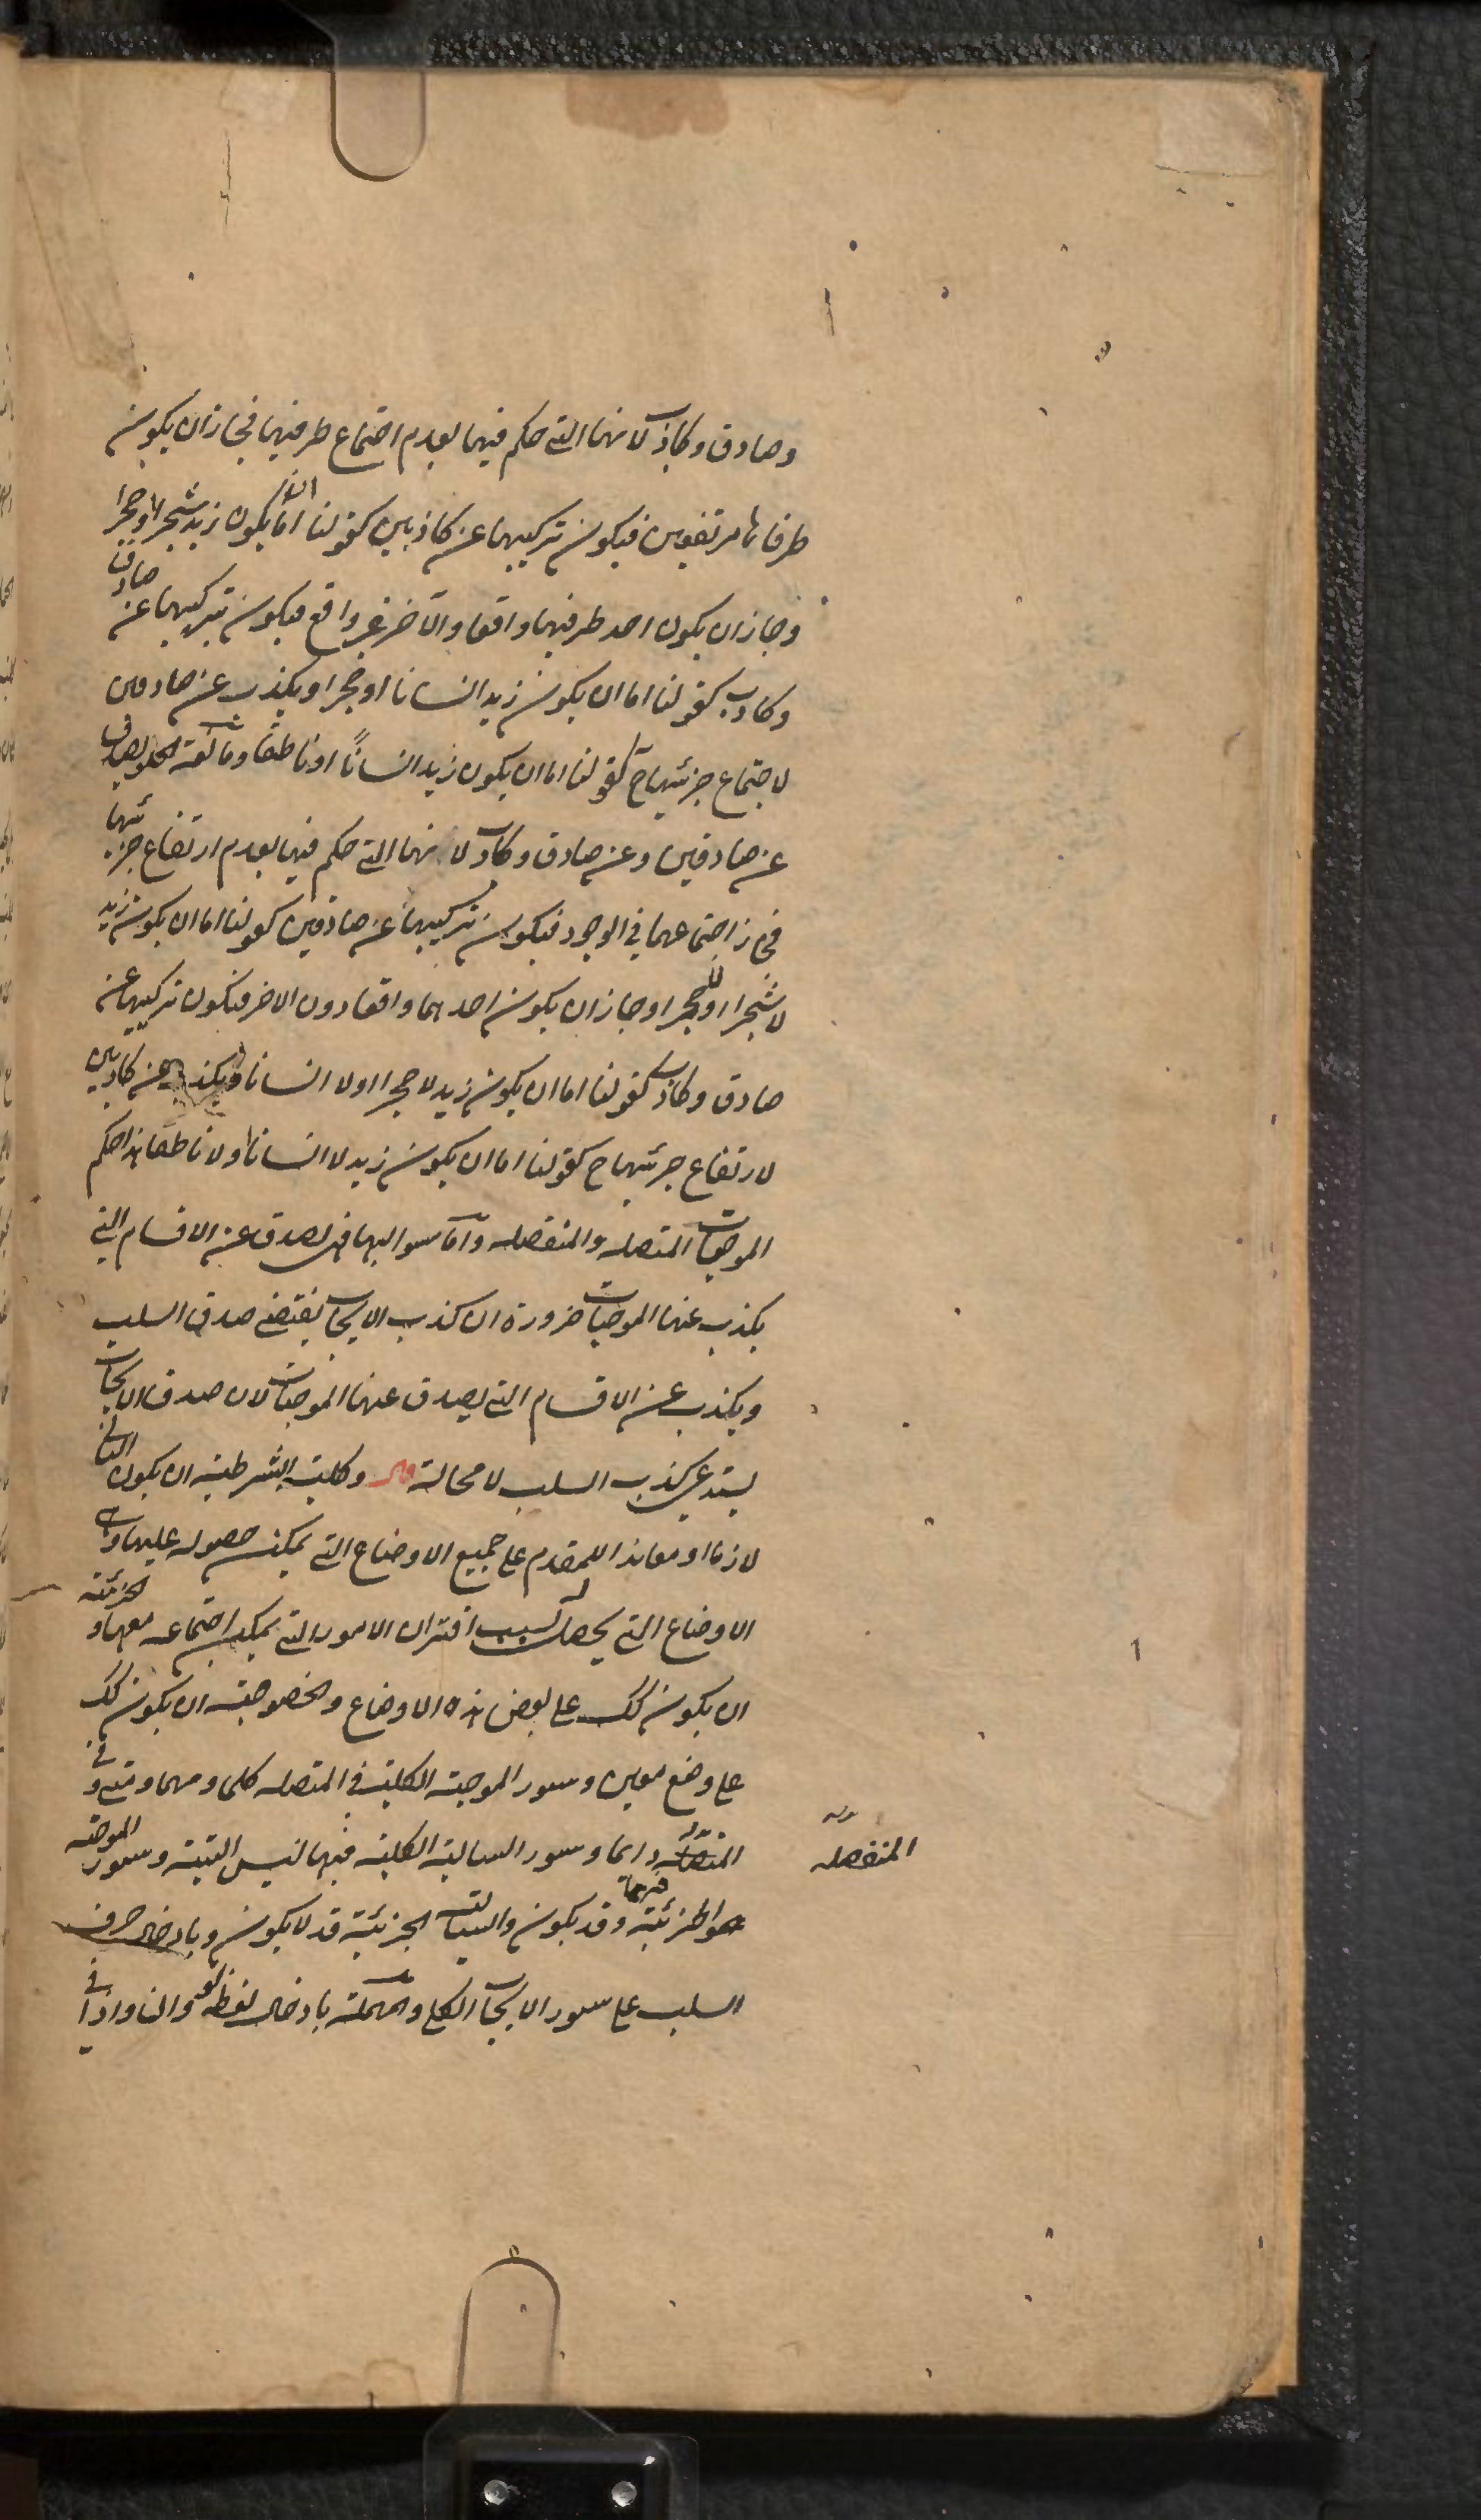 وصادق وكاذب لانهما التي حكم فيهما بعدم اجتماع طرفيها فجاز ان يكون
طرفاها مرتفعين فيكون تركيبها عن كاذبين كقولنا اما ان يكون زيد شجرا او حجرا
وجاز ان يكون احد طرفيها واقعا والآخر غير واقع فيكون تركيبها عن صادق
وكاذب كقولنا اما ان يكون زيد انسانا او حجرا ويكذب عن صادقين
لاجتماع جزئيها ح كقولنا اما ان يكون زيد انسانًا او ناطقا ومانعة الخلو يصدق
عن صادقين وعن صادق وكاذب لانها التي حكم فيها بعدم ارتفاع جزئيها
فجاز اجتماعهما في الوجود فيكون تركيبها عن صادقين كقولنا اما ان يكون زيد
لا شجرا او لا حجرا وجاز ان يكون احدهما واقعا دون الاخر فيكون تركيبها عن
صادق وكاذب كقولنا اما ان يكون زيد لا حجرا او لا انسانا ويكذب عن كاذبين
لارتفاع جزئيها ح كقولنا اما ان يكون زيد لا انسانا او لا ناطقا هذا حكم
الموجبات المتصله والمنفصله واما سوالبها فهي تصدق عن الاقسام التي
يكذب عنها الموجبات ضرورة ان كذب الايجاب يقتضي صدق السلب
ويكذب عن الاقسام التي يصدق عنها الموجبات لان صدق الايجاب
يستدعي كذب السلب لا محالة قال وكلية الشرطية ان يكون التالي
لازما او معاندا للمقدم على جميع الاوضاع التي يمكن حصوله عليها وهي
الاوضاع التي يحصل له بسبب اقتران الامور التي يمكن اجتماعه معها والجزئية
ان يكون كك على بعض هذه الاوضاع والخصوصية ان يكون كك
على وضع معين وسور الموجبة الكلية في المتصله كلما ومهما ومتى وفي
المنفصله دائما وسور السالبة الكلية فيهما ليس البتة وسور الموجبة
المنفصله
الجزئية فيهما قد يكون والسالبة الجزئية قد لا يكون وبادخال حرف
السلب على سور الايجاب الكلي والمهملة باطلاق لفظة لو وان واذا في